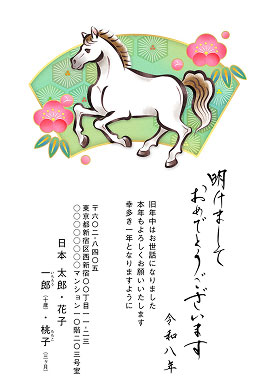 明けまして
おめでとうございます
旧年中はお世話になりました
本年もよろしくお願いいたします
幸多き一年となりますように
令和八年
〒六〇二-八四〇五
東京都新宿区西新宿〇〇丁目一-二三
〇〇〇〇〇〇〇マンション一〇階二〇三号室
日本 太郎・花子
一郎（十歳）・桃子（三ヶ月）